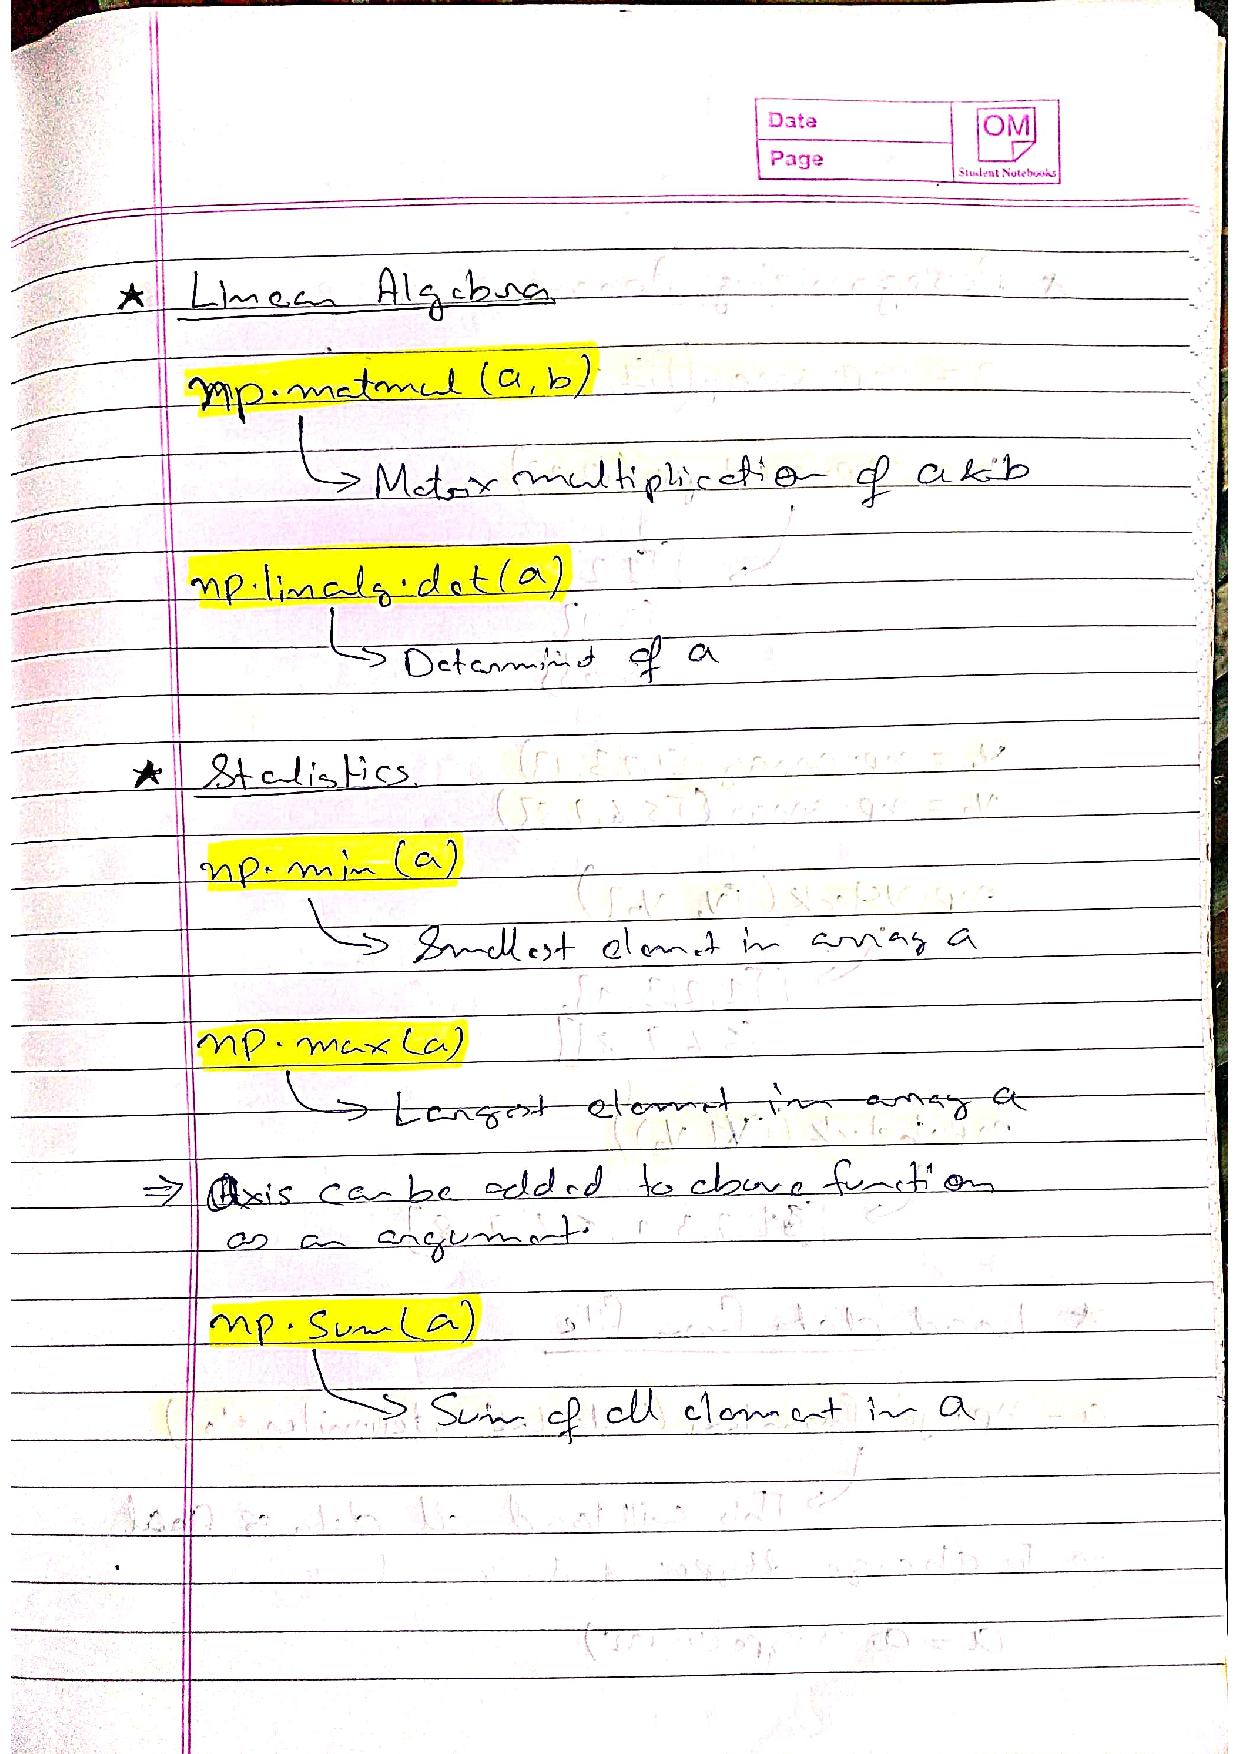 Date
Page
OM
Student Notebooks
★ Linear Algebra
np.matmul (a, b)
→ Matrix multiplication of a & b
np.linalg.det(a)
→ Determint of a
★ Statistics
np.min (a)
→ Smallest elemet in array a
np.max (a)
→ Largest elemet in array a
⇒ Axis can be added to above function
as an argument.
np.sum(a)
→ Sum of all element in a